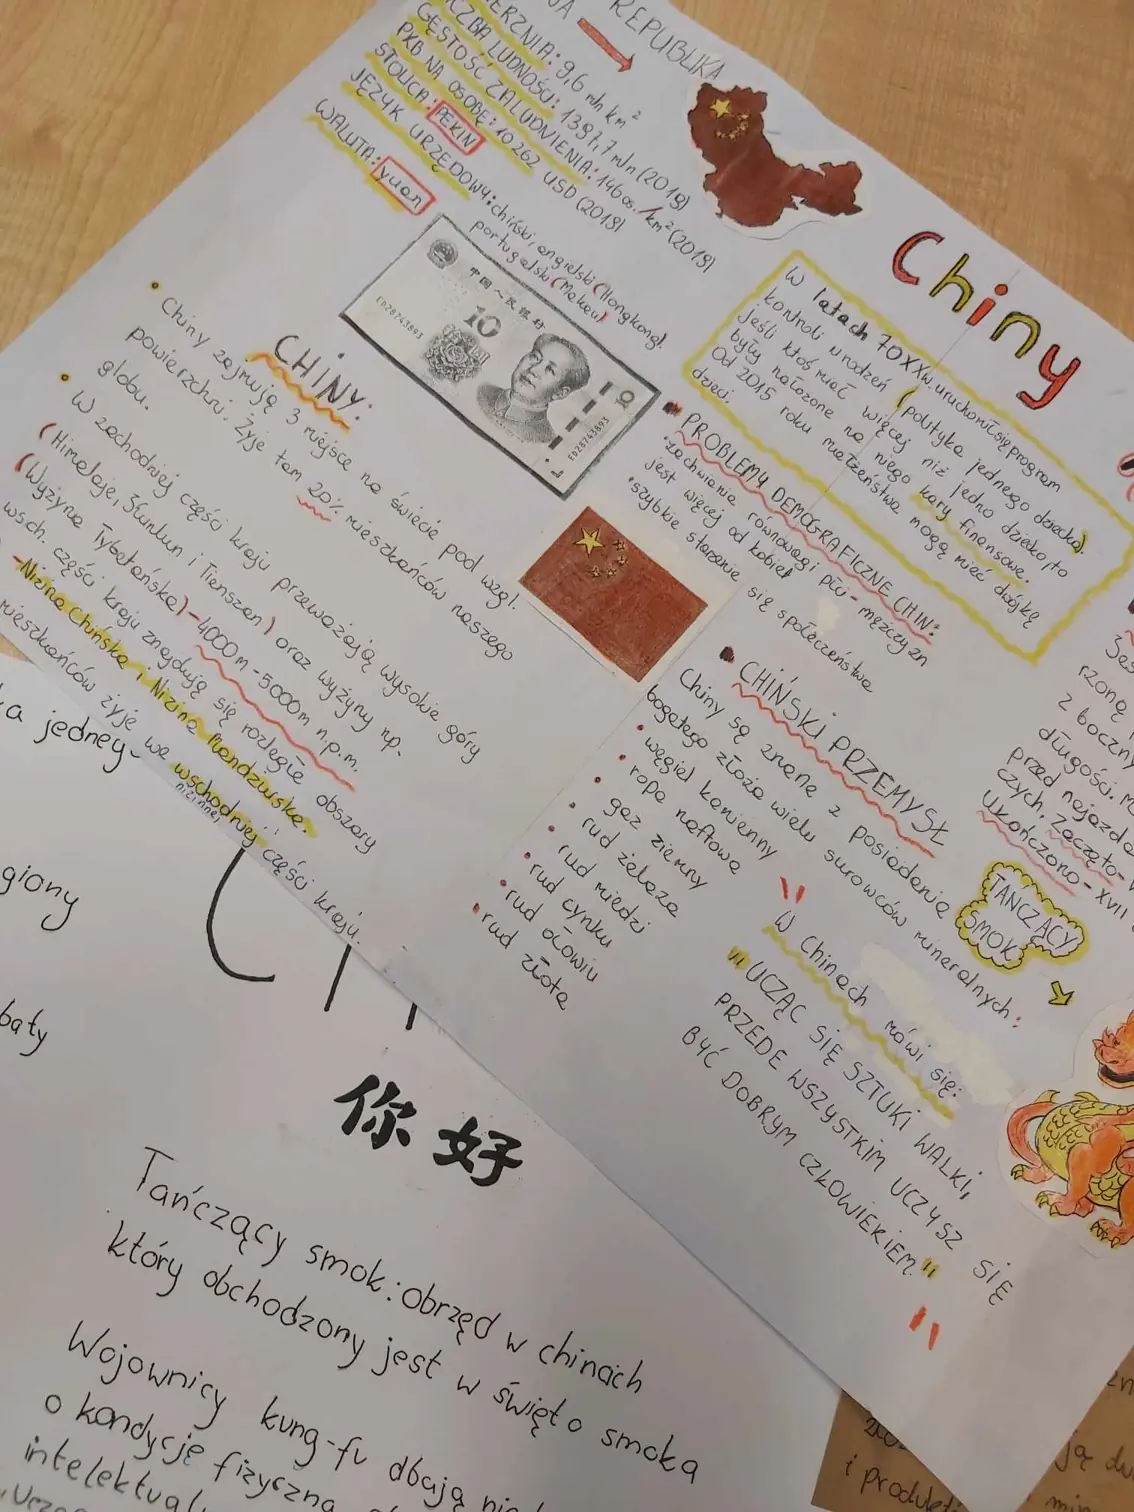 REPUBLIKA
9,6 mln km²
LICZBA LUDNOŚCI: 1397,7 mln (2019)
GĘSTOŚĆ ZALUDNIENIA: 146 os./km² (2019)
PKB NA OSOBĘ: 10262 USD (2019)
STOLICA: PEKIN
JĘZYK URZĘDOWY: chiński angielski (Hongkong).
portugalski (Makau)
WALUTA: yuan
中国人民银行
10
ED28743893
ED28743893
Chiny
W latach 70 XX w. uruchomił się program
kontroli urodzeń (polityka jednego dziecka).
Jeśli ktoś miał więcej niż jedno dziecko, to
były nałożone na niego kary finansowe.
Od 2015 roku małżeństwa mogą mieć dwójkę
dzieci.
PROBLEMY DEMOGRAFICZNE CHIN:
zachwiania równowagi płci - mężczyzn
jest więcej od kobiet
szybkie starzenie się społeczeństwa
CHINY:
Chiny zajmują 3 miejsce na świecie pod wzgl.
powierzchni. Żyje tam 20% mieszkańców naszego
globu.
W zachodniej części kraju przeważają wysokie góry
(Himalaje, Kunlun i Tienszan) oraz wyżyny np.
(Wyżyna Tybetańska) - 4000m - 5000m n.p.m.
wsch. części kraju znajdują się rozległe obszary
- Nizina Chińska i Nizina Mandżurska.
mieszkańców żyje we wschodniej części kraju.
nizinnej
CHIŃSKI PRZEMYSŁ
Chiny są znane z posiadania
bogatego złoża wielu surowców mineralnych:
węgiel kamienny
ropa naftowa
gaz ziemny
rud żelaza
rud miedzi
rud cynku
rud ołowiu
rud złota
W Chinach mówi się:
"UCZĄC SIĘ SZTUKI WALKI,
PRZEDE WSZYSTKIM UCZYSZ SIĘ
BYĆ DOBRYM CZŁOWIEKIEM."
z boczny
długości.
przed najazda
czych. Zaczęto -
Ukończono - XVII
TAŃCZĄCY
SMOK
jednej
baty
你好
Tańczący smok: obrzęd w chinach
który obchodzony jest w święto smoka
Wojownicy kung-fu dbają nie
o kondycję fizyczną
i